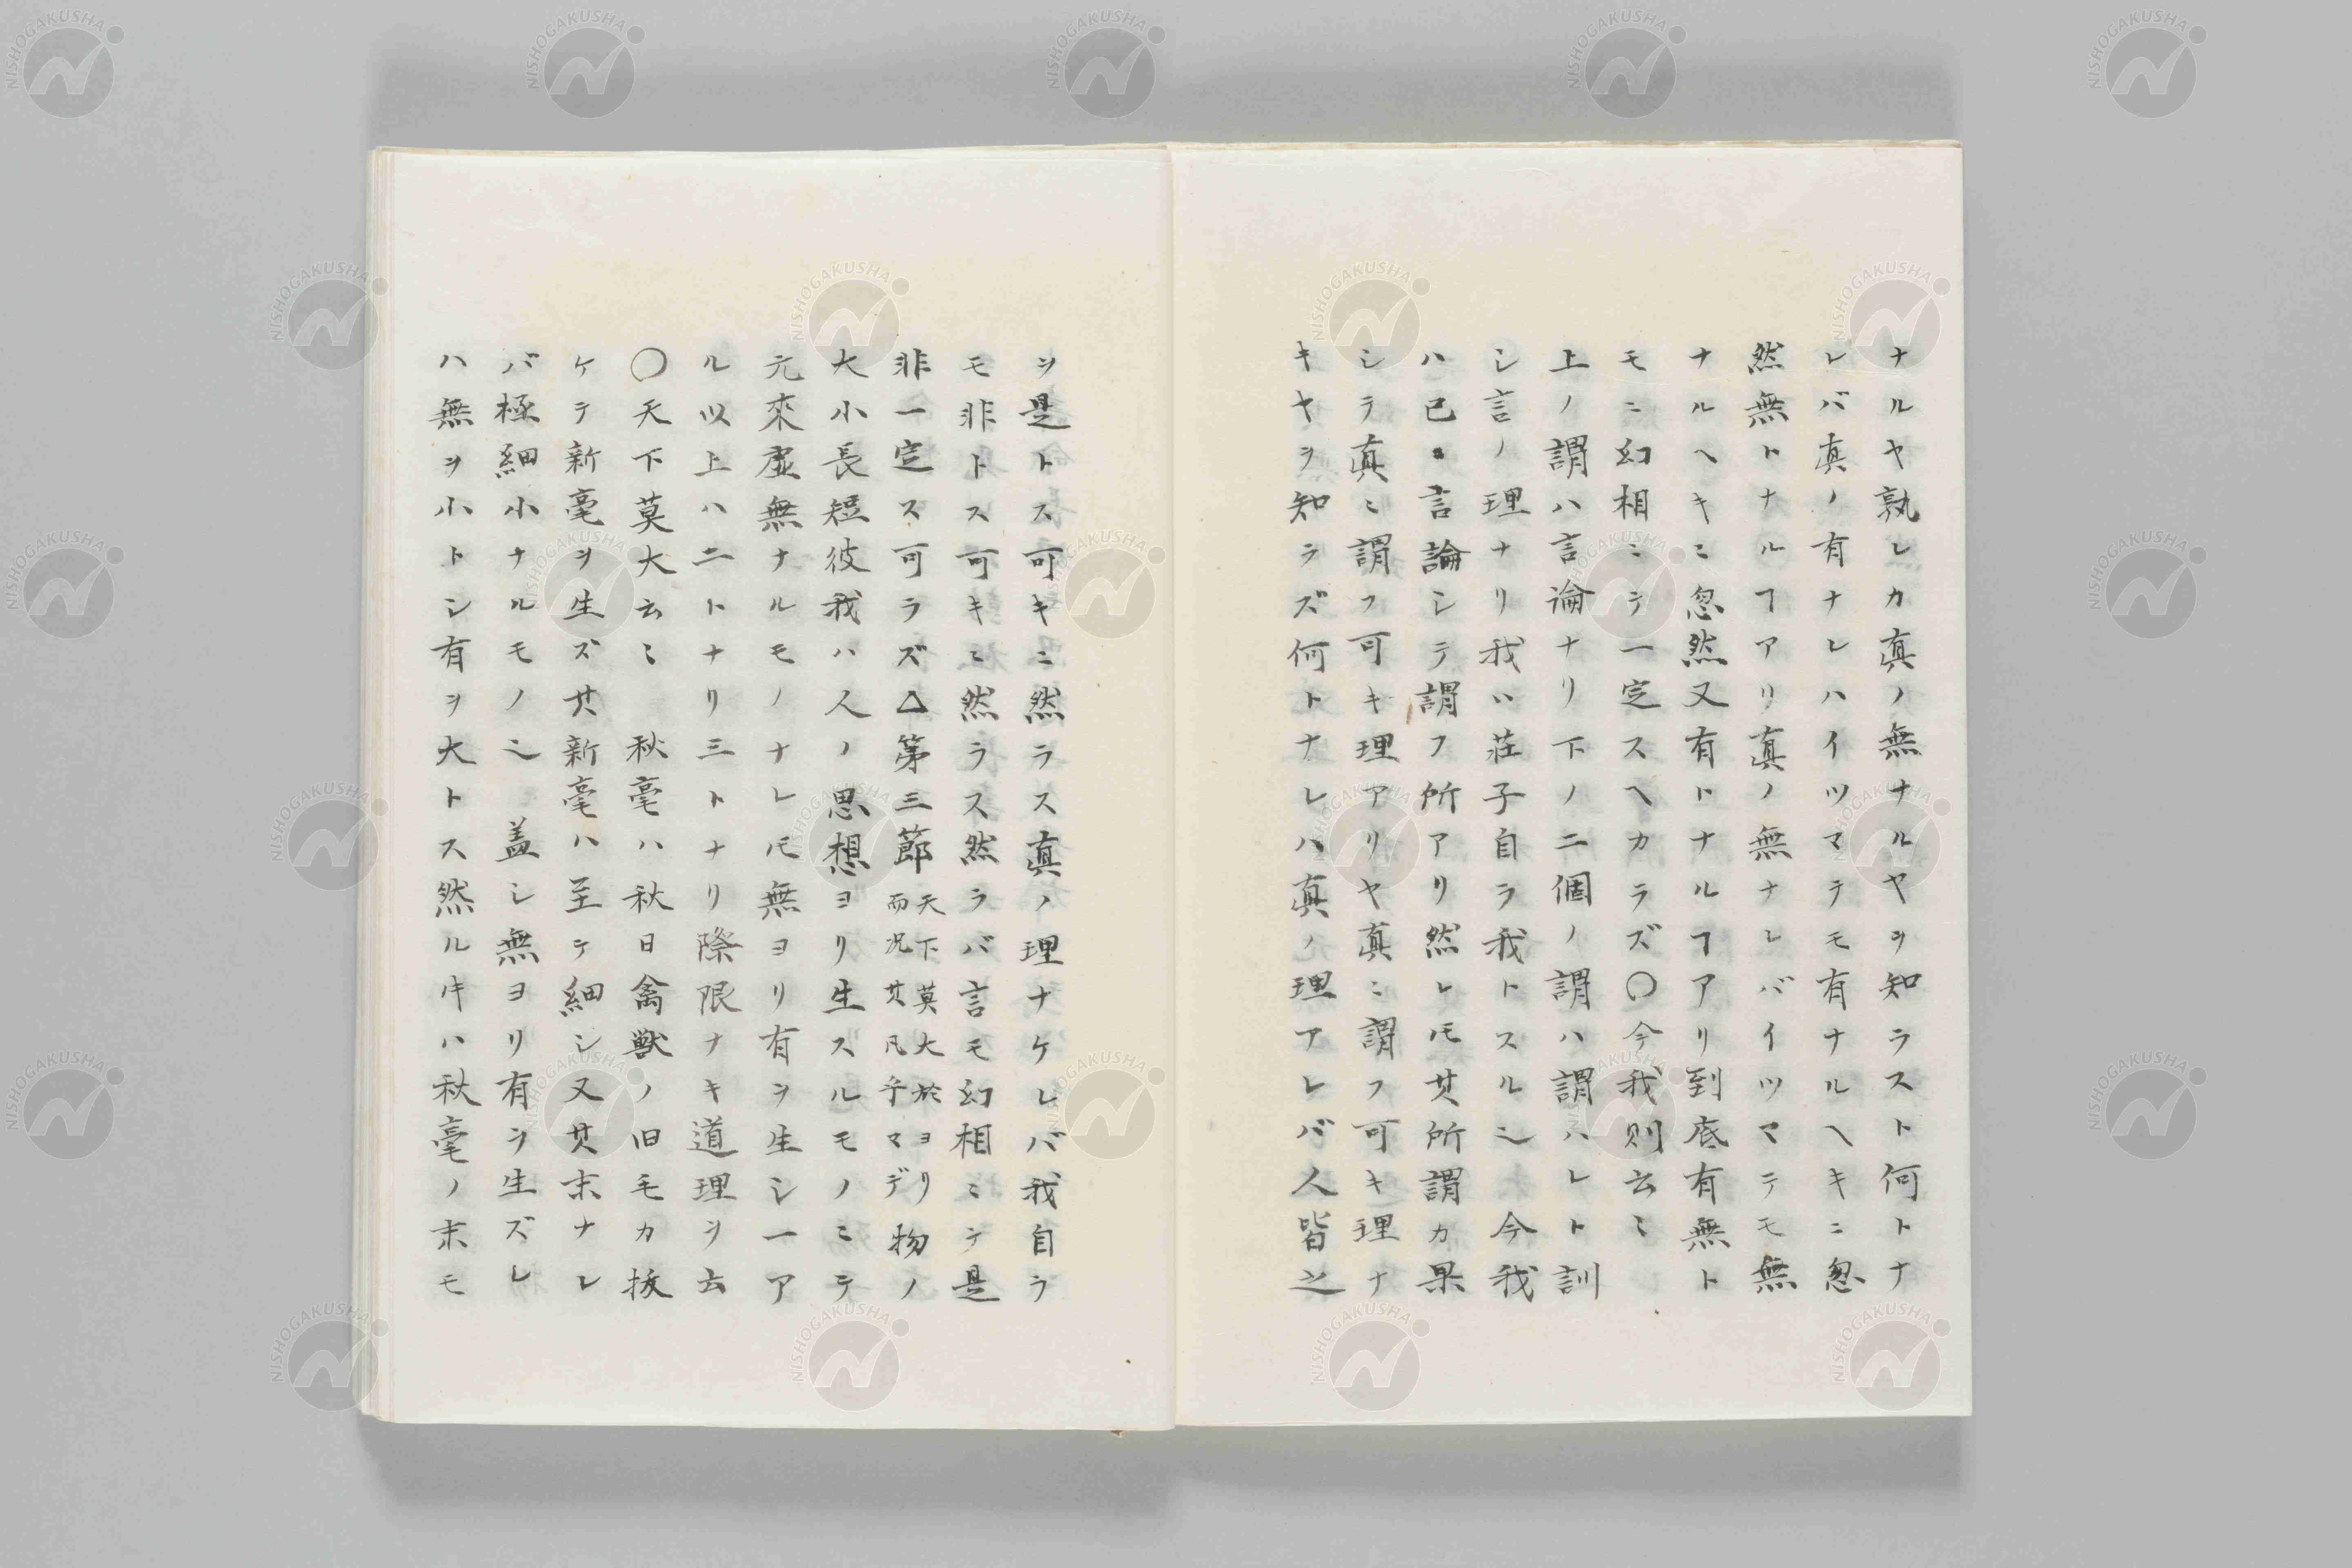 ナルヤ孰レカ真ノ無ナルヤヲ知ラスト何トナ
レバ真ノ有ナレハイツマテモ有ナルヘキニ忽
然無トナルヿアリ真ノ無ナレバイツマテモ無
ナルヘキニ忽然又有トナルヿアリ到底有無ト
モニ幻相ニテ一定スヘカラズ〇今我則云〻
上ノ謂ハ言論ナリ下ノ二個ノ謂ハ謂ハレト訓
シ言ノ理ナリ我ハ荘子自ラ我トスル也今我
ハ已ニ言論シテ謂フ所アリ然レ𪜈其所謂カ果
シテ真ニ謂フ可キ理アリヤ真ニ謂フ可キ理ナ
キヤヲ知ラズ何トナレハ真ノ理アレバ人皆之
ヲ是トス可キニ然ラス真ノ理ナケレバ我自ラ
モ非トス可キニ然ラス然ラバ言モ幻相ニテ是
非一定ス可ラズ△第三節天下莫大於ヨリ而况其凡乎マデ物ノ
大小長短彼我ハ人ノ思想ヨリ生スルモノニテ
元來虚無ナルモノナレ𪜈無ヨリ有ヲ生シ一ア
ル以上ハ二トナリ三トナリ際限ナキ道理ヲ云
〇天下莫大云〻 秋毫ハ秋日禽獣ノ旧毛カ抜
ケテ新毫ヲ生ズ其新毫ハ至テ細シ又其末ナレ
バ極細小ナルモノ也 盖シ無ヨリ有ヲ生ズレ
ハ無ヲ小トシ有ヲ大トス然ル片ハ秋毫ノ末モ
NISHOGAKUSHA